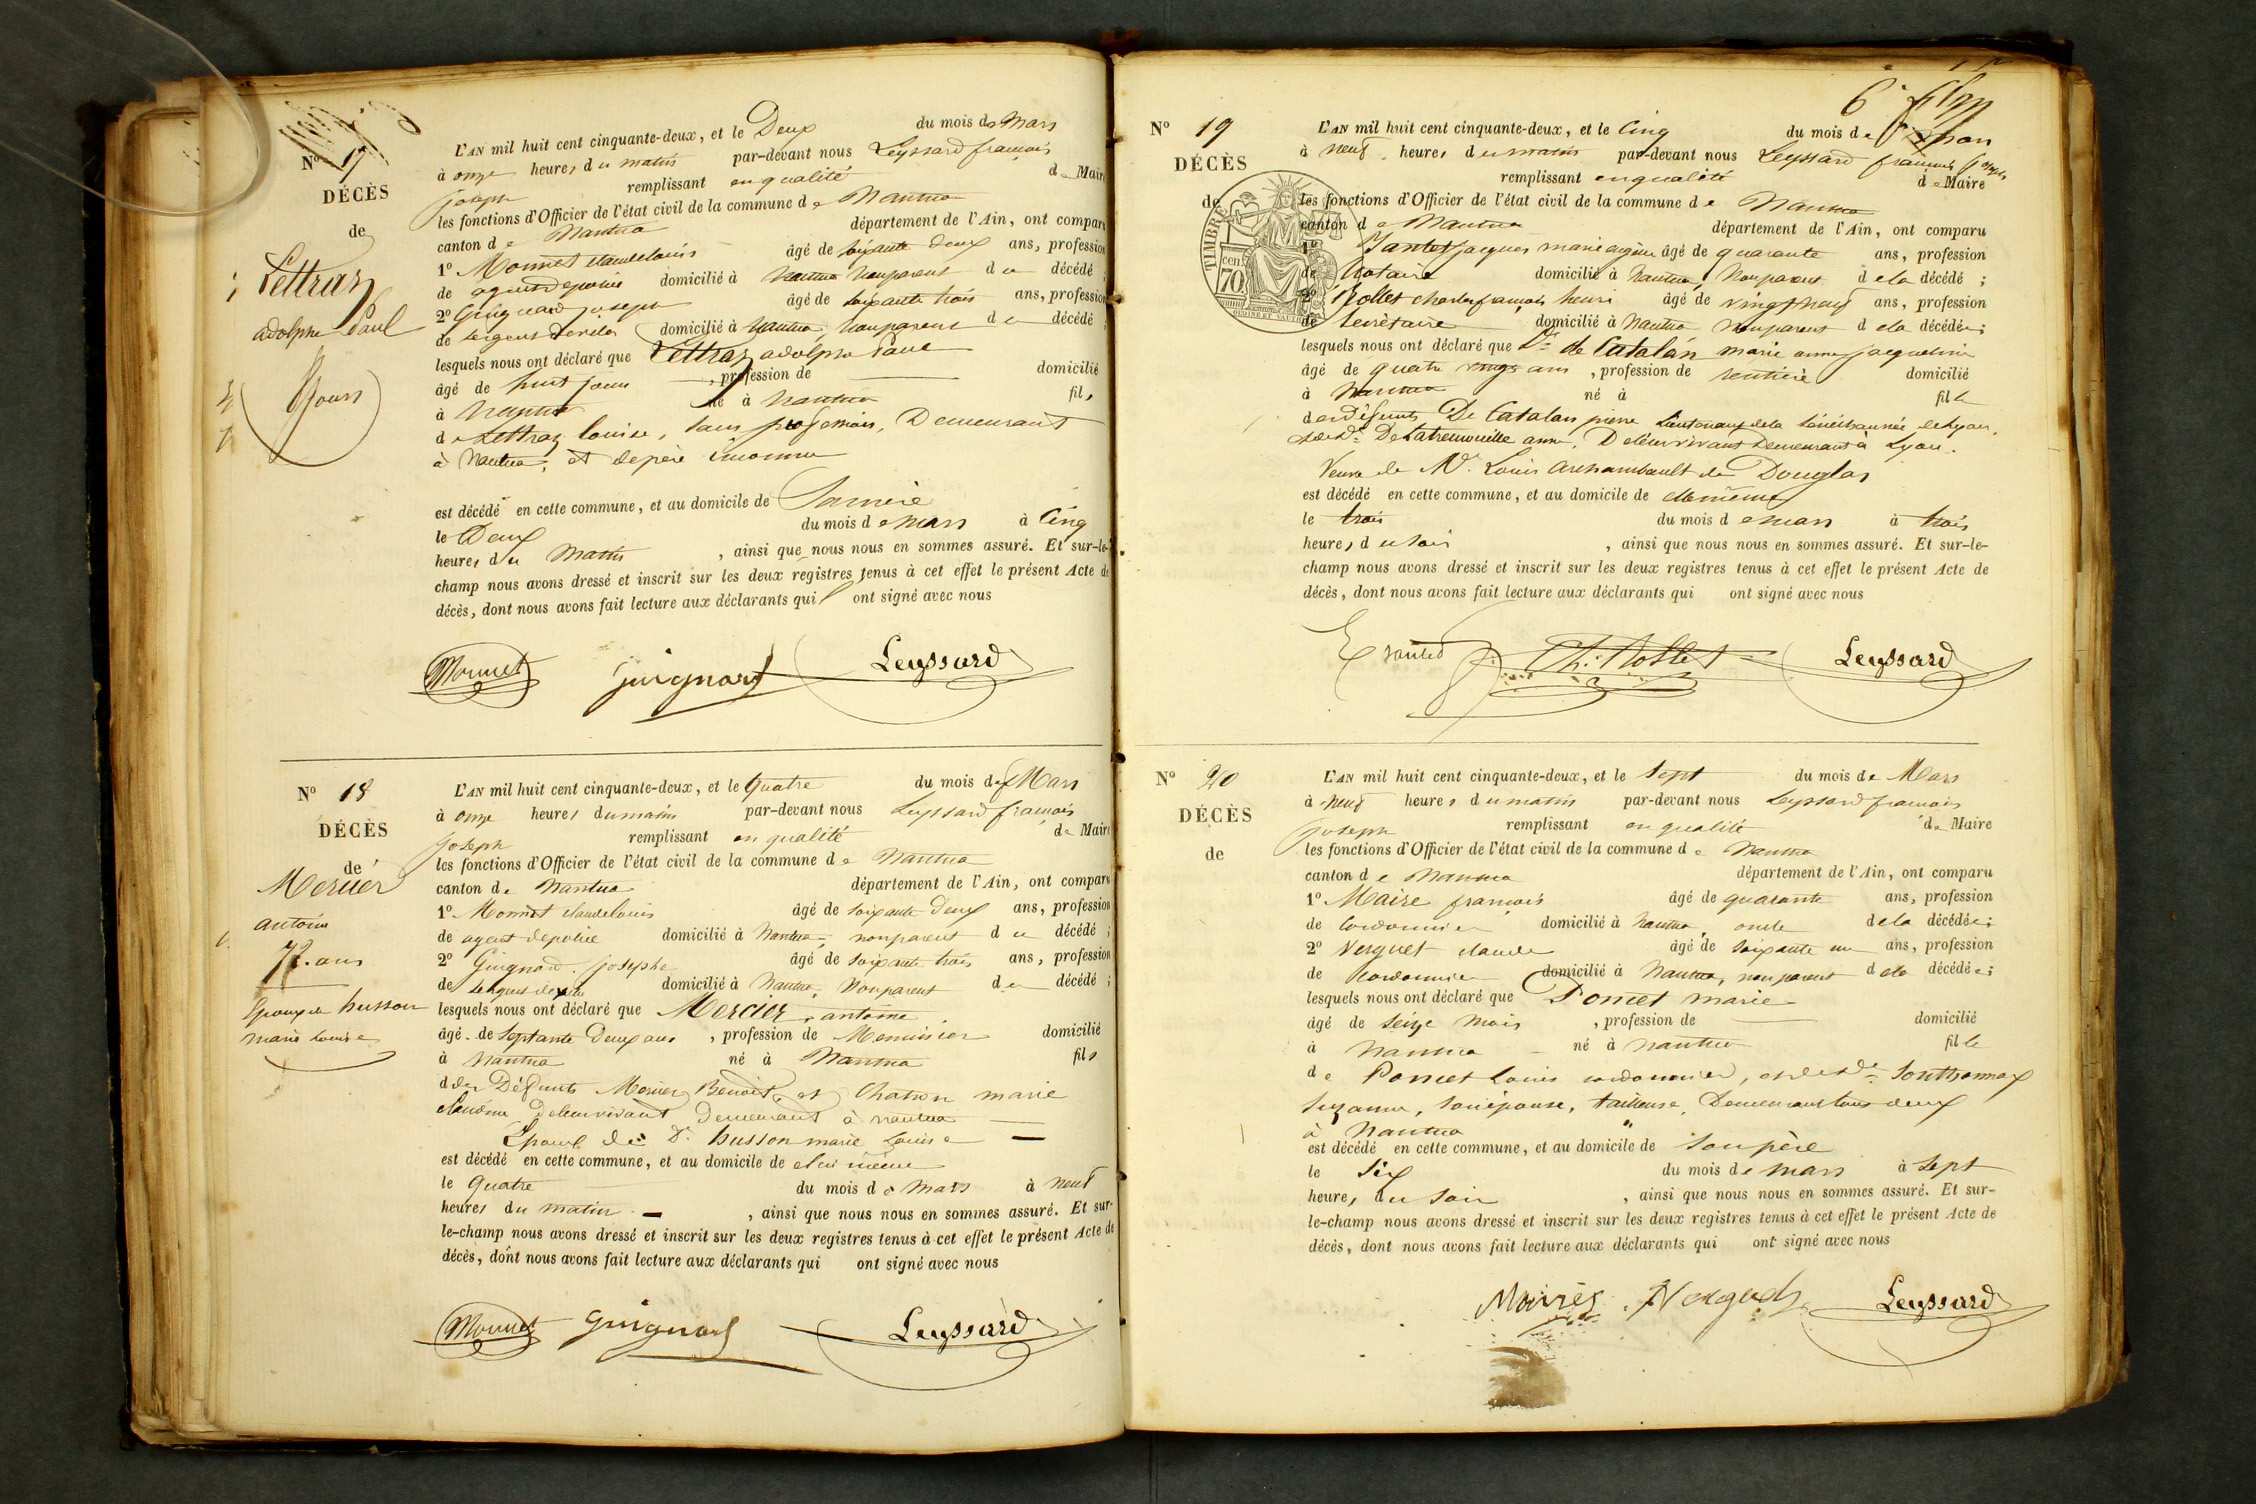 N° 17
DÉCÈS
de
Lettraz
adolphe Paul
8 jours
L'AN mil huit cent cinquante-deux, et le Deux du mois de Mars
à onze heures du matin par-devant nous Leyssard françois
joseph remplissant en qualité de Maire
les fonctions d'Officier de l'état civil de la commune de Nantua
canton de Nantua département de l'Ain, ont comparu
1° Monnet claude louis âgé de soixante deux ans, profession
de agent de police domicilié à Nantua non parent du décédé ;
2° Guignard joseph âgé de soixante trois ans, profession
de sergent de ville domicilié à Nantua, non parent du décédé ;
lesquels nous ont déclaré que Lettraz adolphe Paul
âgé de huit jours , profession de domicilié
à Nantua né à Nantua fils
de Lettraz louise, sans profession, Demeurant
à Nantua, et de père inconnu
est décédé en cette commune, et au domicile de Sa mère
le Deux du mois de Mars à Cinq
heures du Matin , ainsi que nous nous en sommes assuré. Et sur-le-
champ nous avons dressé et inscrit sur les deux registres tenus à cet effet le présent Acte de
décès, dont nous avons fait lecture aux déclarants qui ont signé avec nous
Monnet Guignard Leyssard
N° 18
DÉCÈS
de
Mercier
antoine
72 ans
Epoux de husson
marie Louise
L'AN mil huit cent cinquante-deux, et le quatre du mois de Mars
à onze heures du matin par-devant nous Leyssard françois
joseph remplissant en qualité de Maire
les fonctions d'Officier de l'état civil de la commune de Nantua
canton de Nantua département de l'Ain, ont comparu
1° Monnet claude louis âgé de soixante deux ans, profession
de agent de police domicilié à Nantua, non parent du décédé ;
2° Guignard joseph âgé de soixante trois ans, profession
de sergent de ville domicilié à Nantua, Non parent du décédé ;
lesquels nous ont déclaré que Mercier antoine
âgé de septante Deux ans , profession de Menuisier domicilié
à Nantua né à Nantua fils
des Défunts Mercier Benoit, et Chatron marie
claudine De leur vivant Demeurant à nantua
Epoux de De husson marie Louise
est décédé en cette commune, et au domicile de lui même
le quatre du mois de Mars à neuf
heures du matin , ainsi que nous nous en sommes assuré. Et sur-
le-champ nous avons dressé et inscrit sur les deux registres tenus à cet effet le présent Acte de
décès, dont nous avons fait lecture aux déclarants qui ont signé avec nous
Monnet Guignard Leyssard
6e
N° 19
DÉCÈS
de
TIMBRE
70 cent
L'AN mil huit cent cinquante-deux, et le Cinq du mois de Mars
à neuf heures du matin par-devant nous Leyssard françois joseph
remplissant en qualité de Maire
les fonctions d'Officier de l'état civil de la commune de Nantua
canton de Nantua département de l'Ain, ont comparu
1° Jantet jacques marie eugène âgé de quarante ans, profession
de Notaire domicilié à Nantua, Non parent de la décédé ;
2° Rollet charles françois henri âgé de vingt neuf ans, profession
de Secrétaire domicilié à Nantua non parent de la décédée ;
lesquels nous ont déclaré que De de Catalan marie anne jacqueline
âgé de quatre vingt ans , profession de rentière domicilié
à Nantua né à fille
des défunts De Catalan pierre Lieutenant de la Sénéchaussée de Lyon,
et de De De Latremouille anne, De leur vivant Demeurant à Lyon.
Veuve de Mr. Louis Archambault de Douglas
est décédé en cette commune, et au domicile de elle même
le trois du mois de Mars à trois
heures du soir , ainsi que nous nous en sommes assuré. Et sur-le-
champ nous avons dressé et inscrit sur les deux registres tenus à cet effet le présent Acte de
décès, dont nous avons fait lecture aux déclarants qui ont signé avec nous
E Jantet Ch. Rollet Leyssard
N° 20
DÉCÈS
de
L'AN mil huit cent cinquante-deux, et le Sept du mois de Mars
à neuf heures du matin par-devant nous Leyssard françois
joseph remplissant en qualité de Maire
les fonctions d'Officier de l'état civil de la commune de Nantua
canton de Nantua département de l'Ain, ont comparu
1° Maire françois âgé de quarante ans, profession
de Cordonnier domicilié à Nantua, oncle de la décédée ;
2° Verguet claude âgé de soixante un ans, profession
de cordonnier domicilié à Nantua, non parent de la décédée ;
lesquels nous ont déclaré que Poncet marie
âgé de seize mois , profession de domicilié
à Nantua né à nantua fille
de Poncet Louis cordonnier, et de De Sonthonnax
Suzanne, son épouse, tailleuse, Demeurant tous deux
à Nantua
est décédé en cette commune, et au domicile de son père
le Six du mois de Mars à Sept
heures du soir , ainsi que nous nous en sommes assuré. Et sur-
le-champ nous avons dressé et inscrit sur les deux registres tenus à cet effet le présent Acte de
décès, dont nous avons fait lecture aux déclarants qui ont signé avec nous
Leyssard